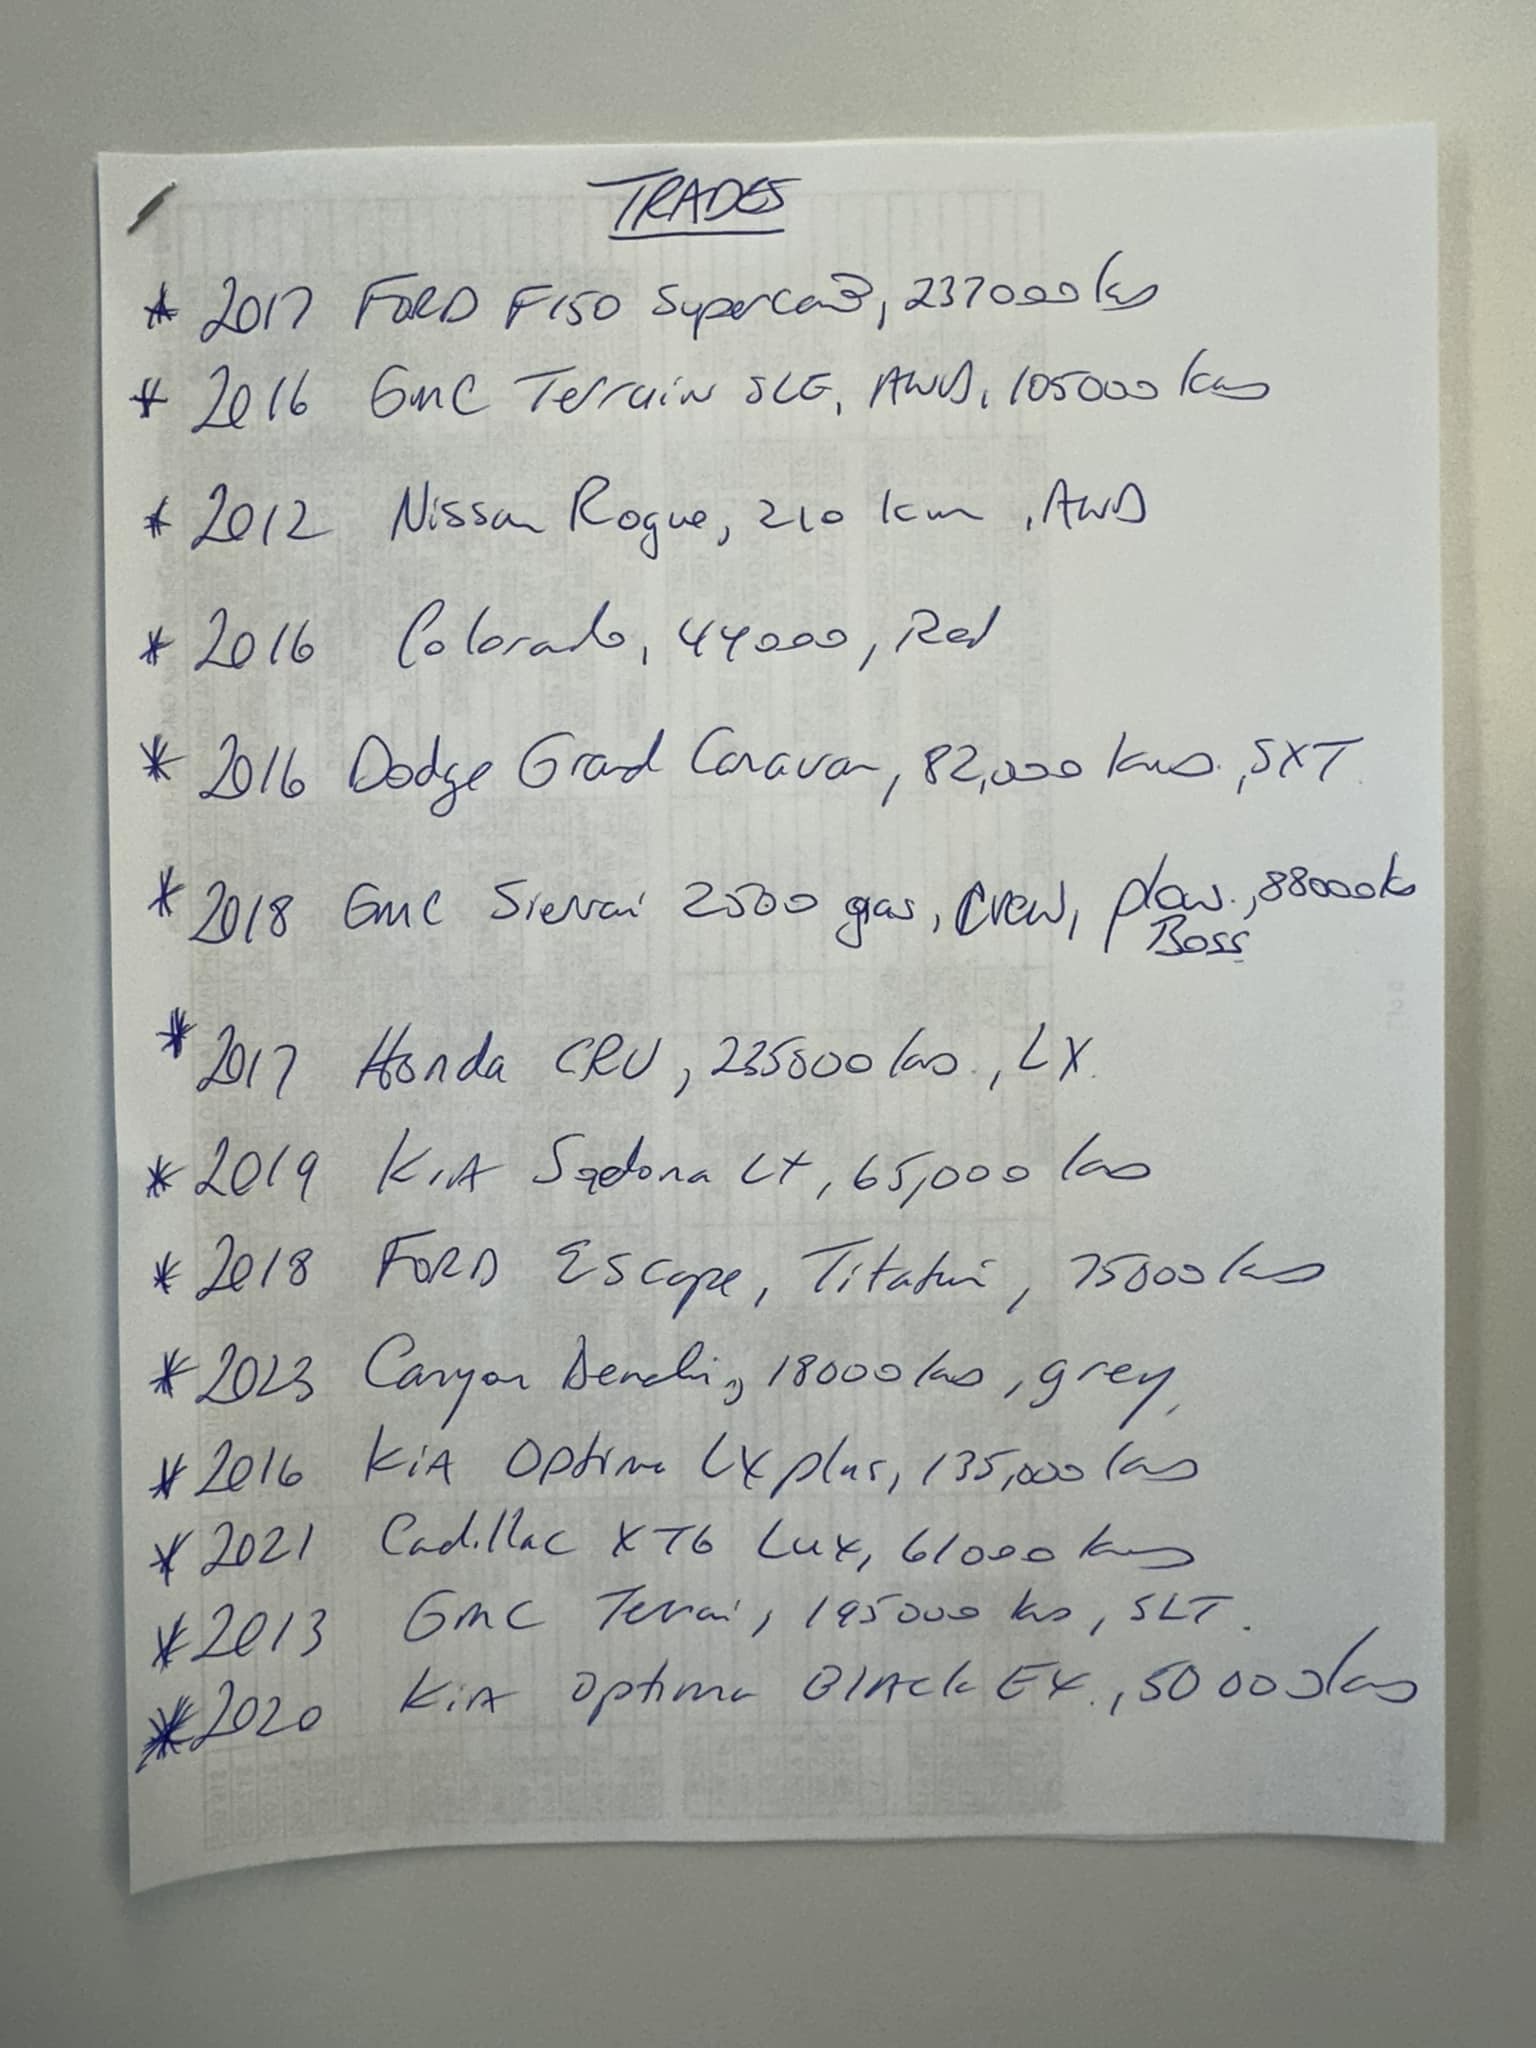 TRADES
* 2017 FORD F150 Supercab, 237000 kms
* 2016 GMC Terrain SLE, AWD, 105000 kms
* 2012 Nissan Rogue, 210 km, AWD
* 2016 Colorado, 44000, Red
* 2016 Dodge Grand Caravan, 82,000 kms., SXT
* 2018 GMC Sierra 2500 gas, crew, plow., 88000 k
Boss
* 2017 Honda CRV, 235000 kms., LX
* 2019 KIA Sedona LX, 65,000 kms
* 2018 FORD Escape, 75000 kms
* 2023 Canyon Denali, 18000 kms, grey,
* 2016 KIA Optima LX plus, 135,000 kms
* 2021 Cadillac XT6 Lux, 61000 kms
* 2013 GMC Terrai, 195000 kms, SLT.
* 2020 KIA Optima Black EX., 50 000 kms